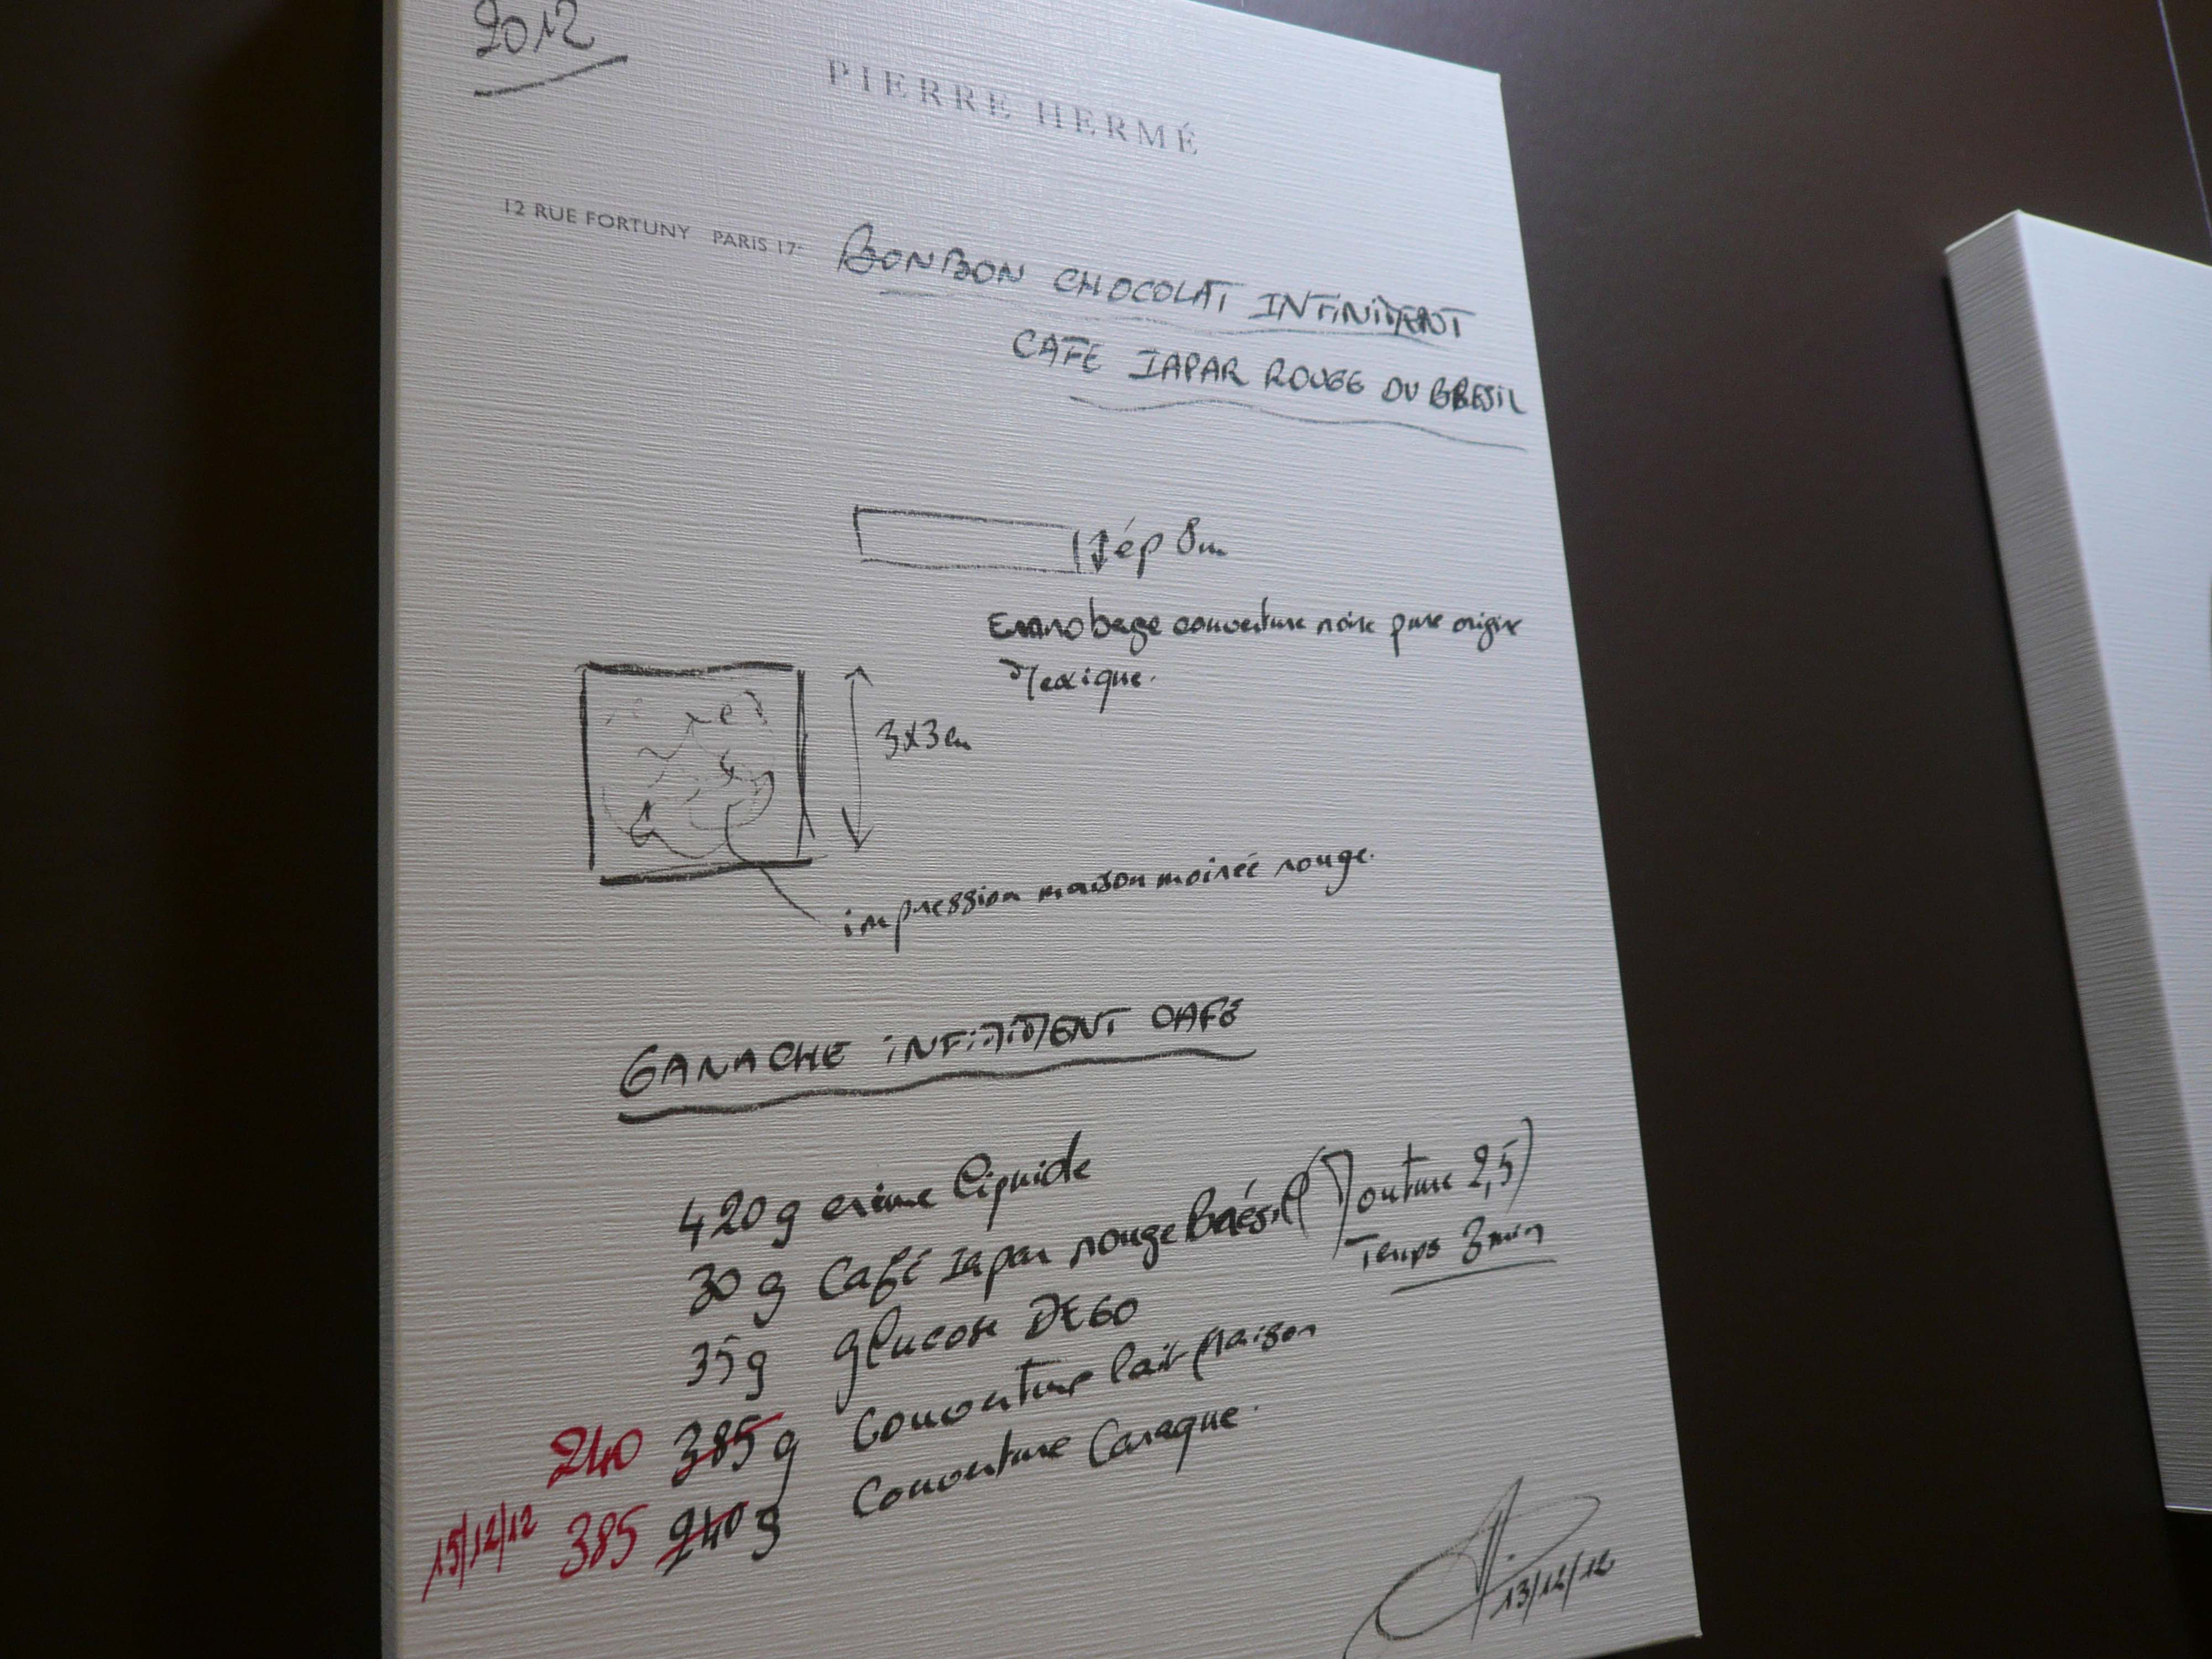 2012
PIERRE HERMÉ
12 RUE FORTUNY PARIS 17
BONBON CHOCOLAT INFINIMENT
CAFE IAPAR ROUGE DU BRESIL
ép 8m
Enrobage couverture noire pure origine
Mexique.
3x3cm
impression maison moirée rouge.
GANACHE iNFiNiMENT CAFÉ
420g crème liquide
30 g Café Iapar rouge Brésil (Mouture 2,5)
Temps 3 min
35g glucose DE60
240 385g Couverture lait Maison
15/12/12 385 240g Couverture Caraque.
13/12/12